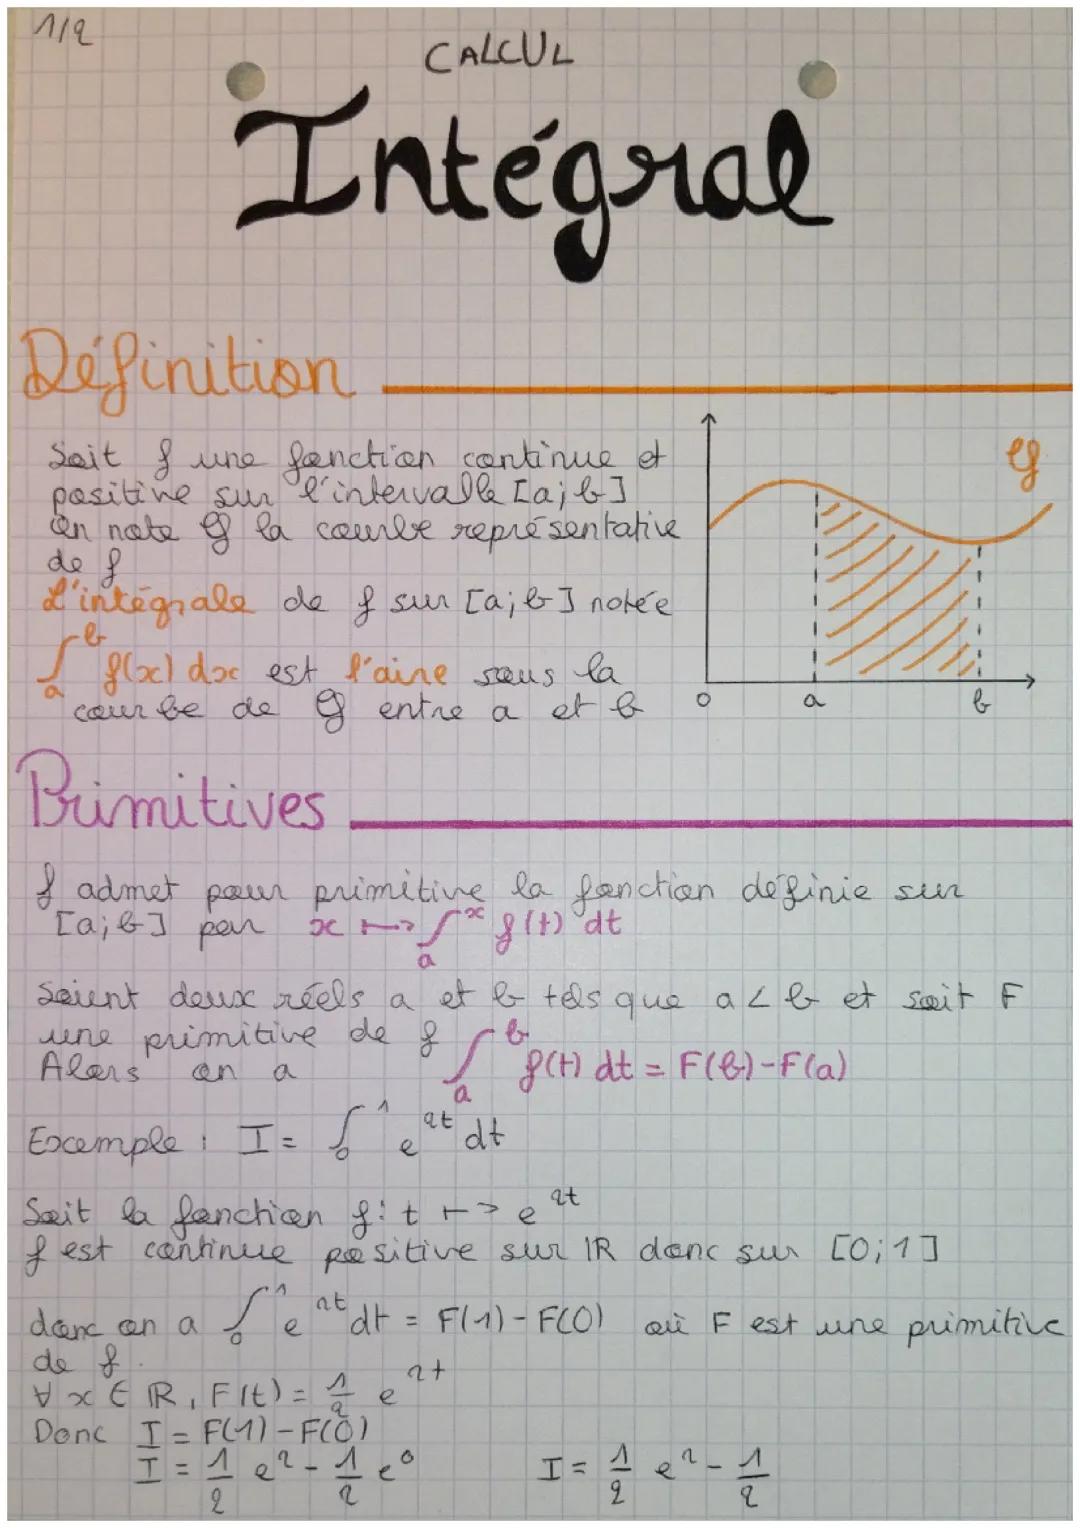 1/2
CALCUL
Intégral
Définition
Soit f une fonction continue et
positive sur l'intervalle [a;b]
On note Cf la courbe représentative
de f
L'intégrale de f sur [a;b] notée
∫ₐᵇ f(x) dx est l'aire sous la
courbe de Cf entre a et b
Cf
0 a b
Primitives
f admet pour primitive la fonction définie sur
[a;b] par x ↦ ∫ₐˣ f(t) dt
Soient deux réels a et b tels que a < b et soit F
une primitive de f
Alors on a ∫ₐᵇ f(t) dt = F(b)-F(a)
Exemple : I = ∫₀¹ e²ᵗ dt
Soit la fonction f: t ↦ e²ᵗ
f est continue positive sur ℝ donc sur [0;1]
donc on a ∫₀¹ e²ᵗ dt = F(1)-F(0) où F est une primitive
de f.
∀ x ∈ ℝ, F(t) = 1/2 e²ᵗ
Donc I = F(1)-F(0)
I = 1/2 e² - 1/2 e⁰ I = 1/2 e² - 1/2